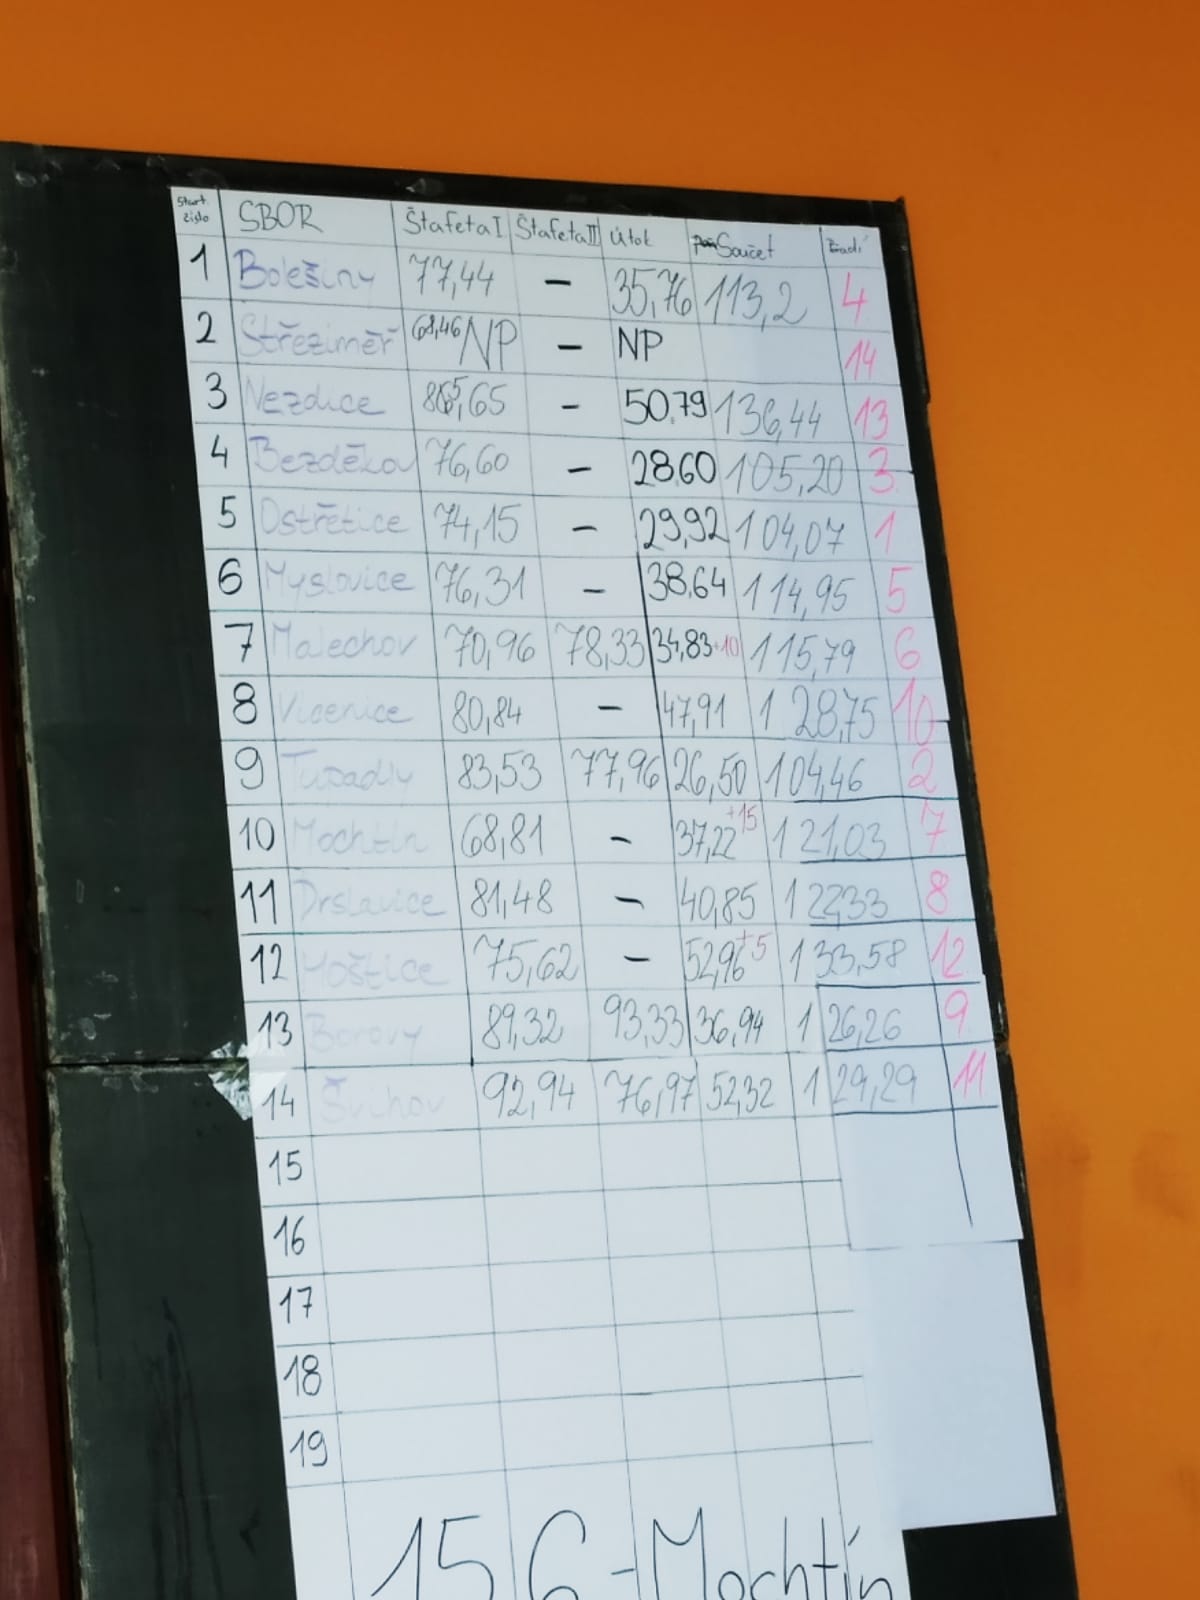 Start. číslo SBOR Štafeta I Štafeta II Útok Součet Řadí
1 Bolešiny 77,44 - 35,76 113,2 4
2 Střeziměř 68,46 NP - NP 14
3 Nezdice 85,65 - 50,79 136,44 13
4 Bezděkov 76,60 - 28,60 105,20 3
5 Ostřetice 74,15 - 29,92 104,07 1
6 Myslovice 76,31 - 38,64 114,95 5
7 Malechov 70,96 78,33 34,83 +10 115,79 6
8 Vícenice 80,84 - 47,91 128,75 10
9 Tupadly 83,53 77,96 26,50 104,46 2
10 Mochtín 68,81 - 37,22 +15 121,03 7
11 Drslavice 81,48 - 40,85 122,33 8
12 Hoštice 75,62 - 52,96 +5 133,58 12
13 Borovy 89,32 93,33 36,94 126,26 9
14 Švihov 92,94 76,97 52,32 129,29 11
15
16
17
18
19
15 6 - Mochtín